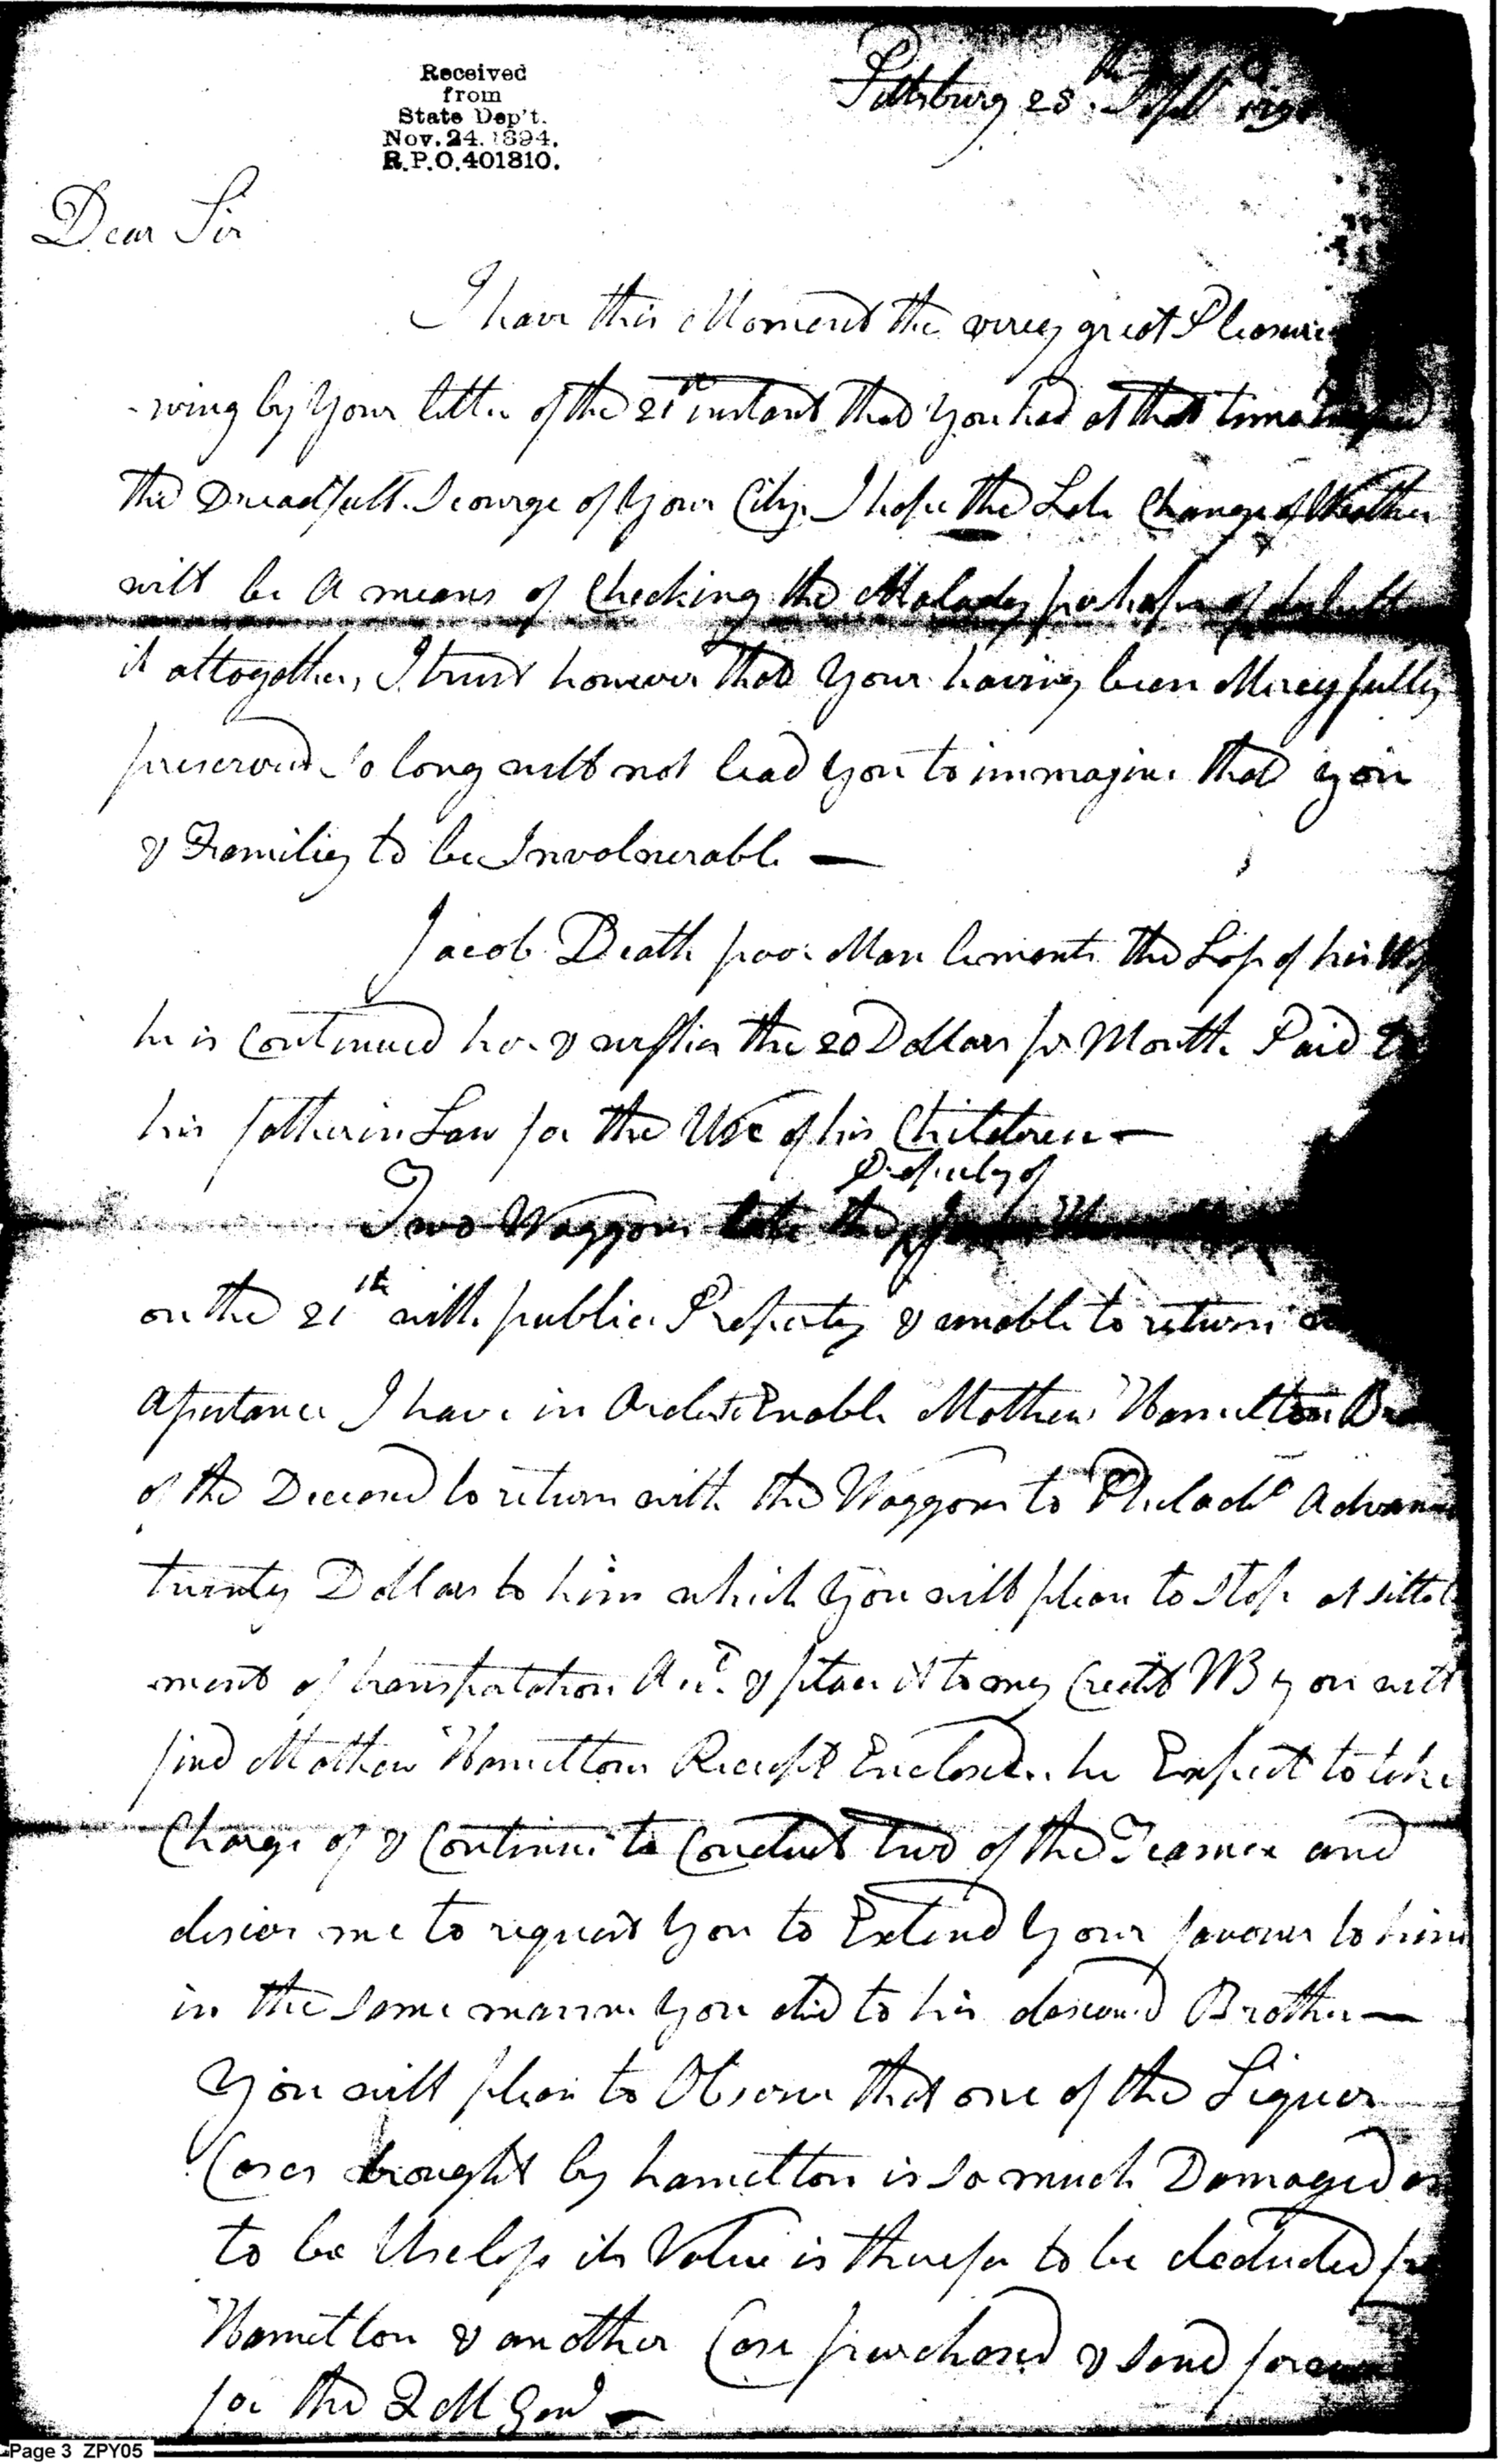 Received
from
State Dep't.
Nov. 24. 1894.
R.P.O. 401810.
Pittsburg 28th Sept
Dear Sir
I have this Moment the verey great Pleasure
-wing by Your letter of the 21st instant that You had at that time
the Dreadfull Scourge of Your City. I hope the Late Change of Weather
will be A means of Checking the Malady perhaps of
it altogether, I trust however that Your having been Mercyfully
preserved so long will not lead You to immagine that you
& Familiey to be Involnerable —
Jacob Death poor Man laments the Loss of his
he is Continued here & wishes the 20 Dollars pr Month Paid to
his father in Law for the Use of his Children —
Deputy of
Two Waggons late the
on the 21th with public Property & unable to return
I have in Order to Enable Mathew Hamilton
of the Deceasd to return with the Waggons to Philada Advan
twenty Dollars to him which You will pleas to Stop at settel
ment of transportation Acct. & place it to my Credit NB you will
find Mathew Hamiltons Receipt Enclosed. he Expect to take
Charge of & Continue to Conduct two of the Teames and
desires me to request You to Extend Your favours to him
in the same manner You did to his deseased Brother —
You will pleas to Observe that one of the Liquor
Cases brought by hamelton is so much Damaged as
to be Useless its Value is therefor to be deducted
Hamilton & another Case purchased & send
for the Q M Genl —
Page 3 ZPY05